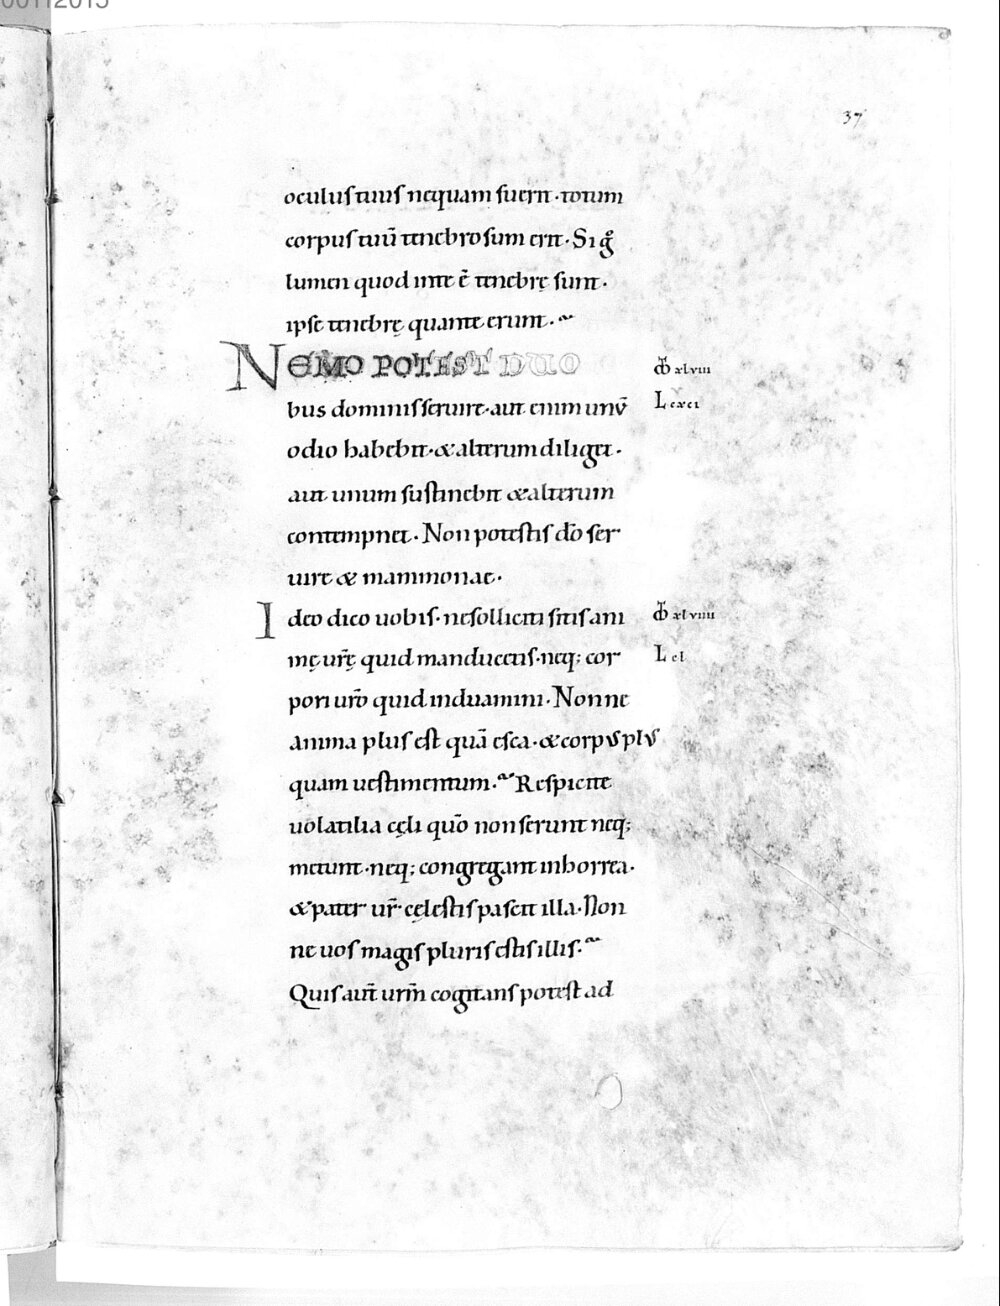 00112015
37
oculus tuus nequam fuerit · totum
corpus tuū tenebrosum erit · Si gͦ
lumen quod in te ē tenebrę sunt ·
ipse tenebrę quante erunt ·
NEMO POTEST DUO
bus dominis seruire · aut enim unū
odio habebit · & alterum diliget ·
aut unum sustinebit & alterum
contempnet · Non potestis dō ser
uire & mammonae ·
Ideo dico uobis · ne solliciti sitis ani
mę ur̄ę quid manducetis · neq; cor
pori ur̄o quid induamini · Nonne
anima plus est quā esca · & corpus plus
quam uestimentum · Respicite
uolatilia cęli quō non serunt neq;
metunt · neq; congregant in horrea ·
& pater ur̄ · cęlestis pascit illa · Non
ne uos magis pluris estis illis ·
Quis aut̄ urm̄ cogitans potest ad
xlviii
L cxci
xlviiii
L cl